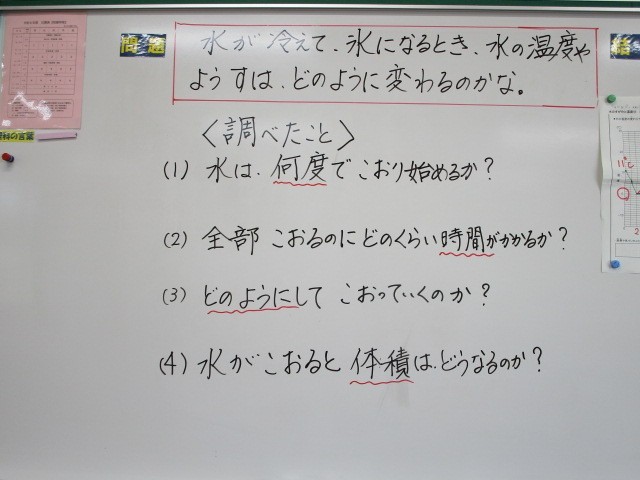 問題
水が冷えて、氷になるとき、水の温度や
ようすは、どのように変わるのかな。
〈調べたこと〉
(1) 水は、何度でこおり始めるか?
(2) 全部こおるのにどのくらい時間がかかるか?
(3) どのようにしてこおっていくのか?
(4) 水がこおると体積は、どうなるのか?
の言葉
11℃